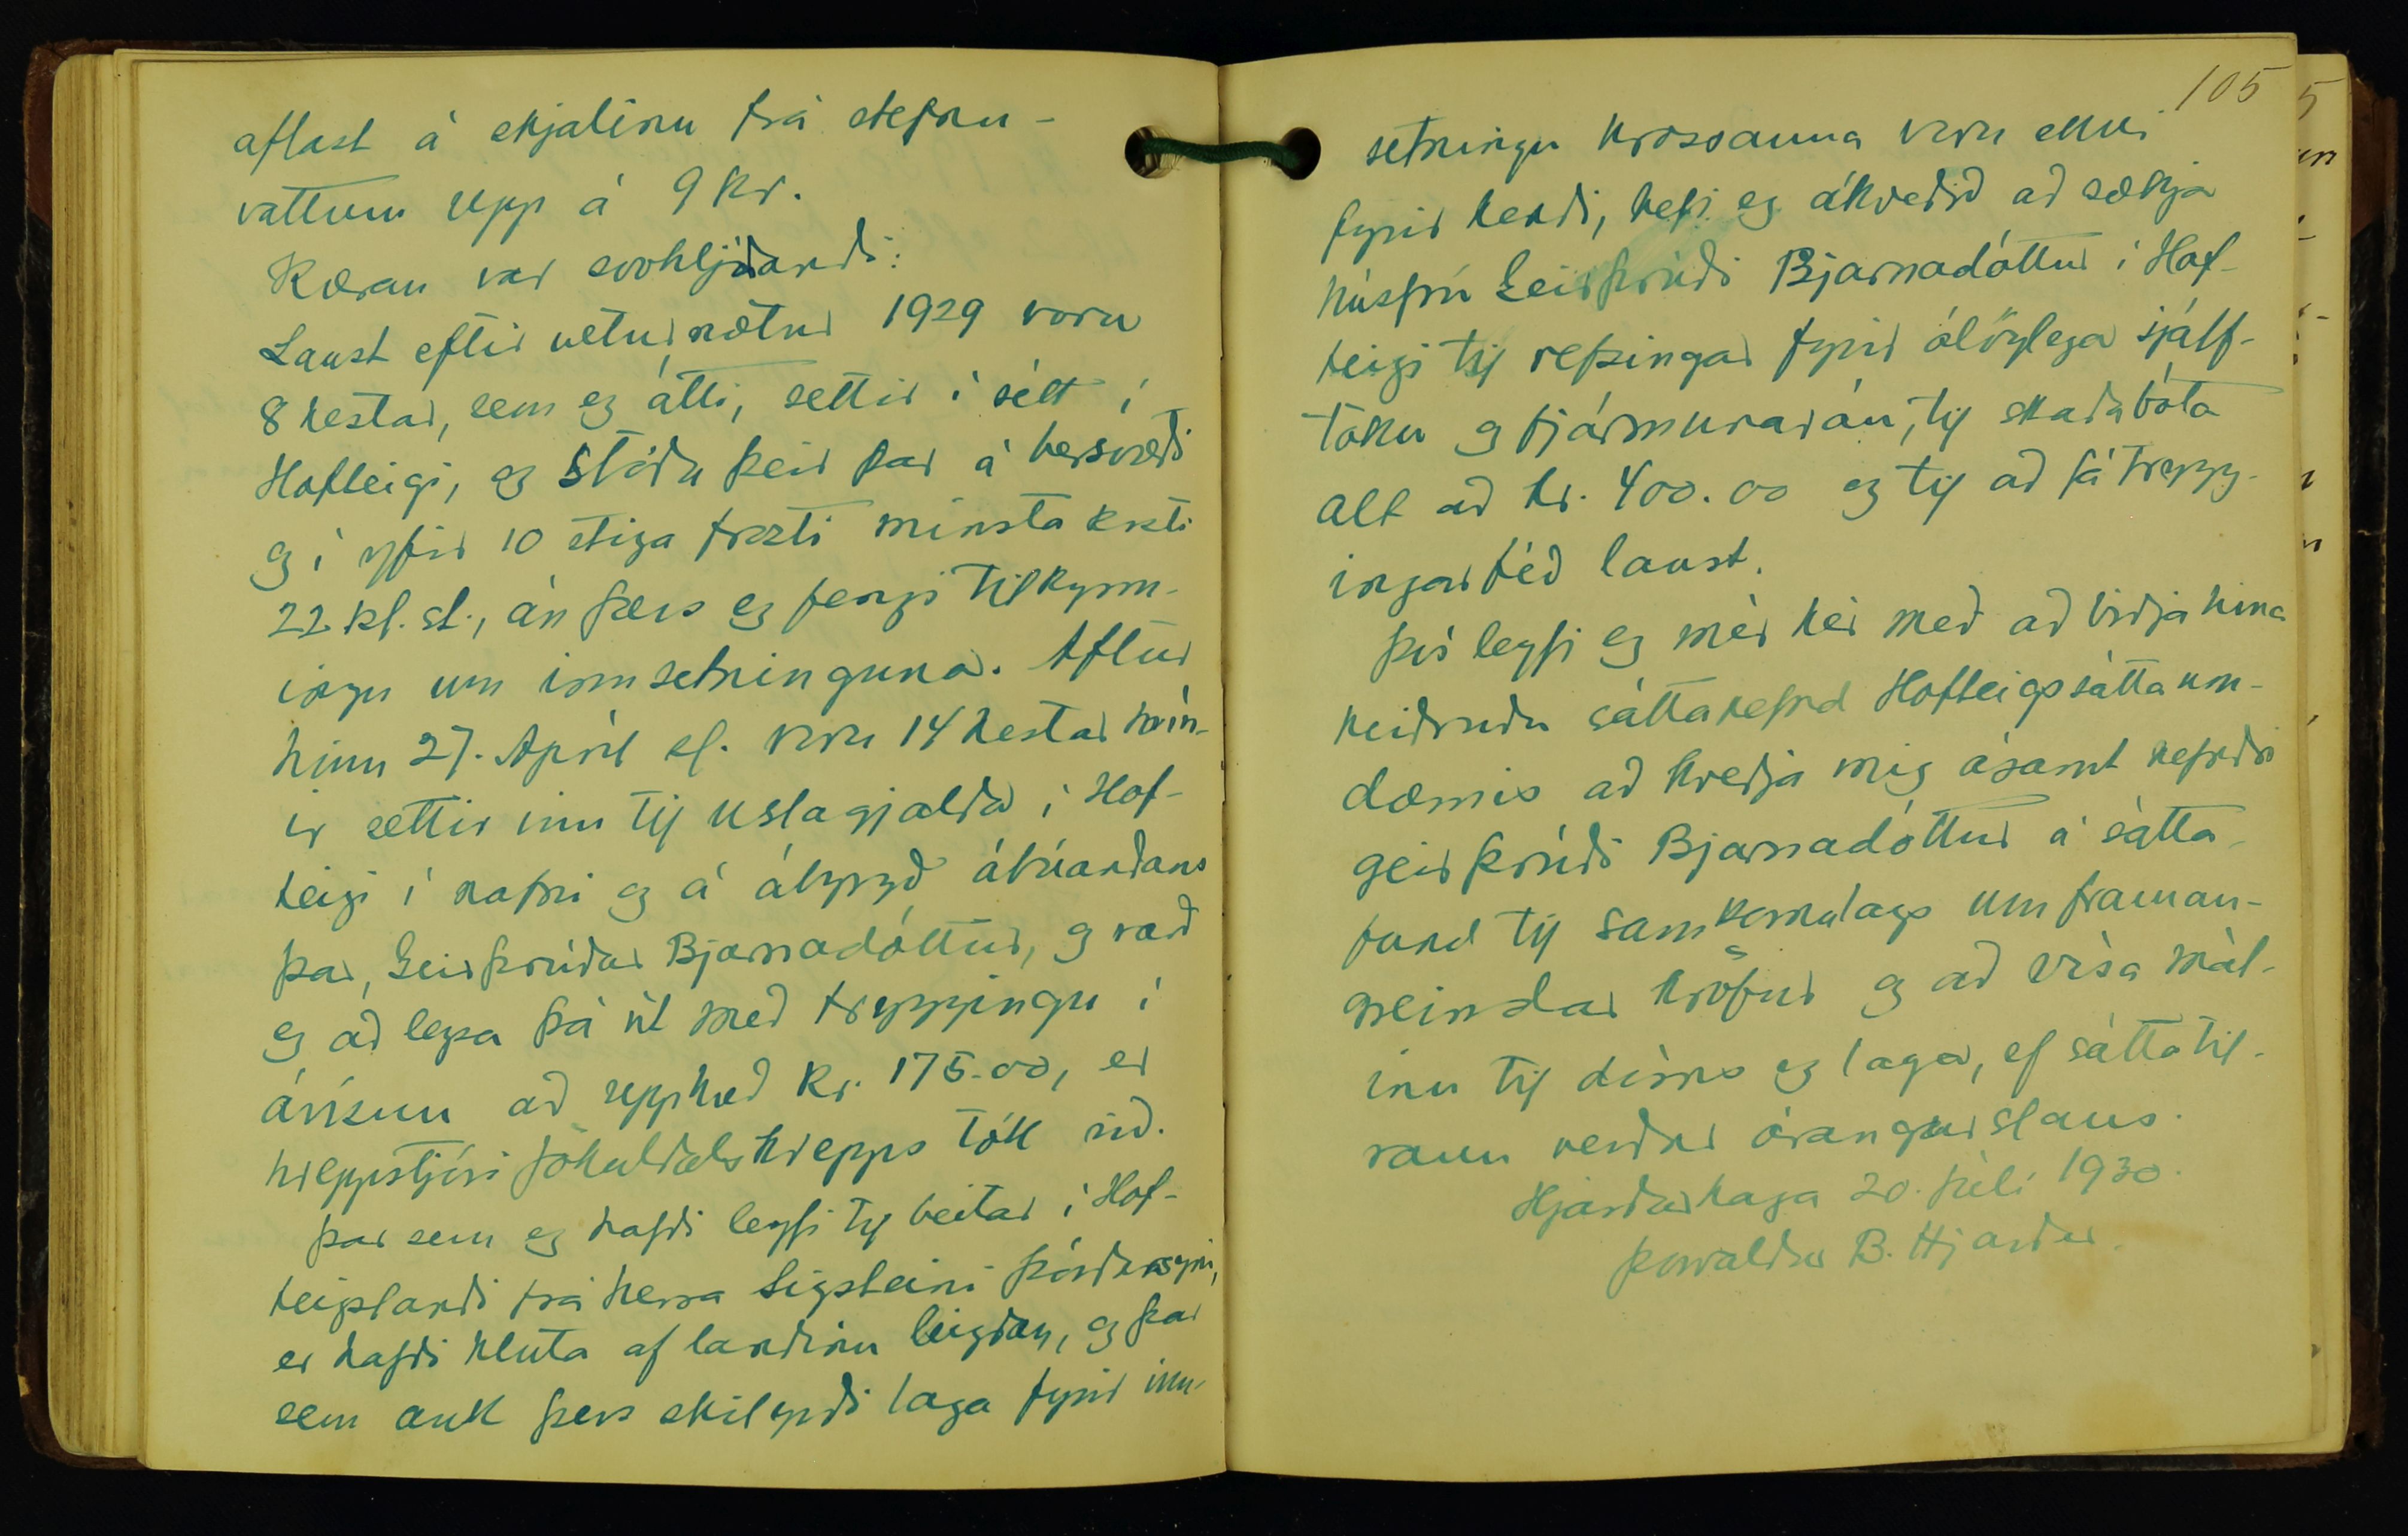 aflast á skjalinu frá stefnu-
vottum upp á 9 kr.
Kæran var svohljóðandi:
Laust eftir veturnætur 1929 voru
8 hestar, sem eg átti, settir í sélt í
Hofteigi, og stóðu þeir þar á bersvæði
og í yfir 10 stiga frosti minsta kosti
22 kl. st., án þess eg fengi tilkynn-
ingu um innsetninguna. Aftur
hinn 27. Apríl sl. voru 14 hestar mín-
ir settir inn til uslagjalda í Hof-
teigi í nafni og á ábyrgð ábúandans
þar, Geirþrúðar Bjarnadóttur, og varð
eg að leysa þá út með tryggingu í
ávísun að upphæð kr. 175.00, er
hreppstjóri Jökuldalshrepps tók við.
Þar sem eg hafði leyfi til beitar í Hof-
teigslandi frá herra Sigsteini Þórðarsyni,
er hafði hluta af landinu leigðan, og þar
sem auk þess skilyrði laga fyrir inn-
105
setningu hrossanna voru ekki
fyrir hendi, hefi eg ákveðið að sækja
húsfrú Geirþrúði Bjarnadóttur í Hof-
teigi til refsingar fyrir ólöglega sjálf-
töku og fjármunarán, til skaðabóta
alt að kr. 400.00 og til að fá trygg-
ingarféð laust.
Því leyfi eg mér hér með að biðja hina
heiðruðu sáttanefnd Hofteigssáttaum-
dæmis að kveðja mig ásamt nefndri
Geirþrúði Bjarnadóttur á sátta-
fund til samkomulags um framan-
greindar kröfur og að vísa mál-
inu til dóms og laga, ef sáttatil-
raun verður árangurslaus.
Hjarðarhaga 20. júlí 1930.
Þorvaldur B. Hjarðar.